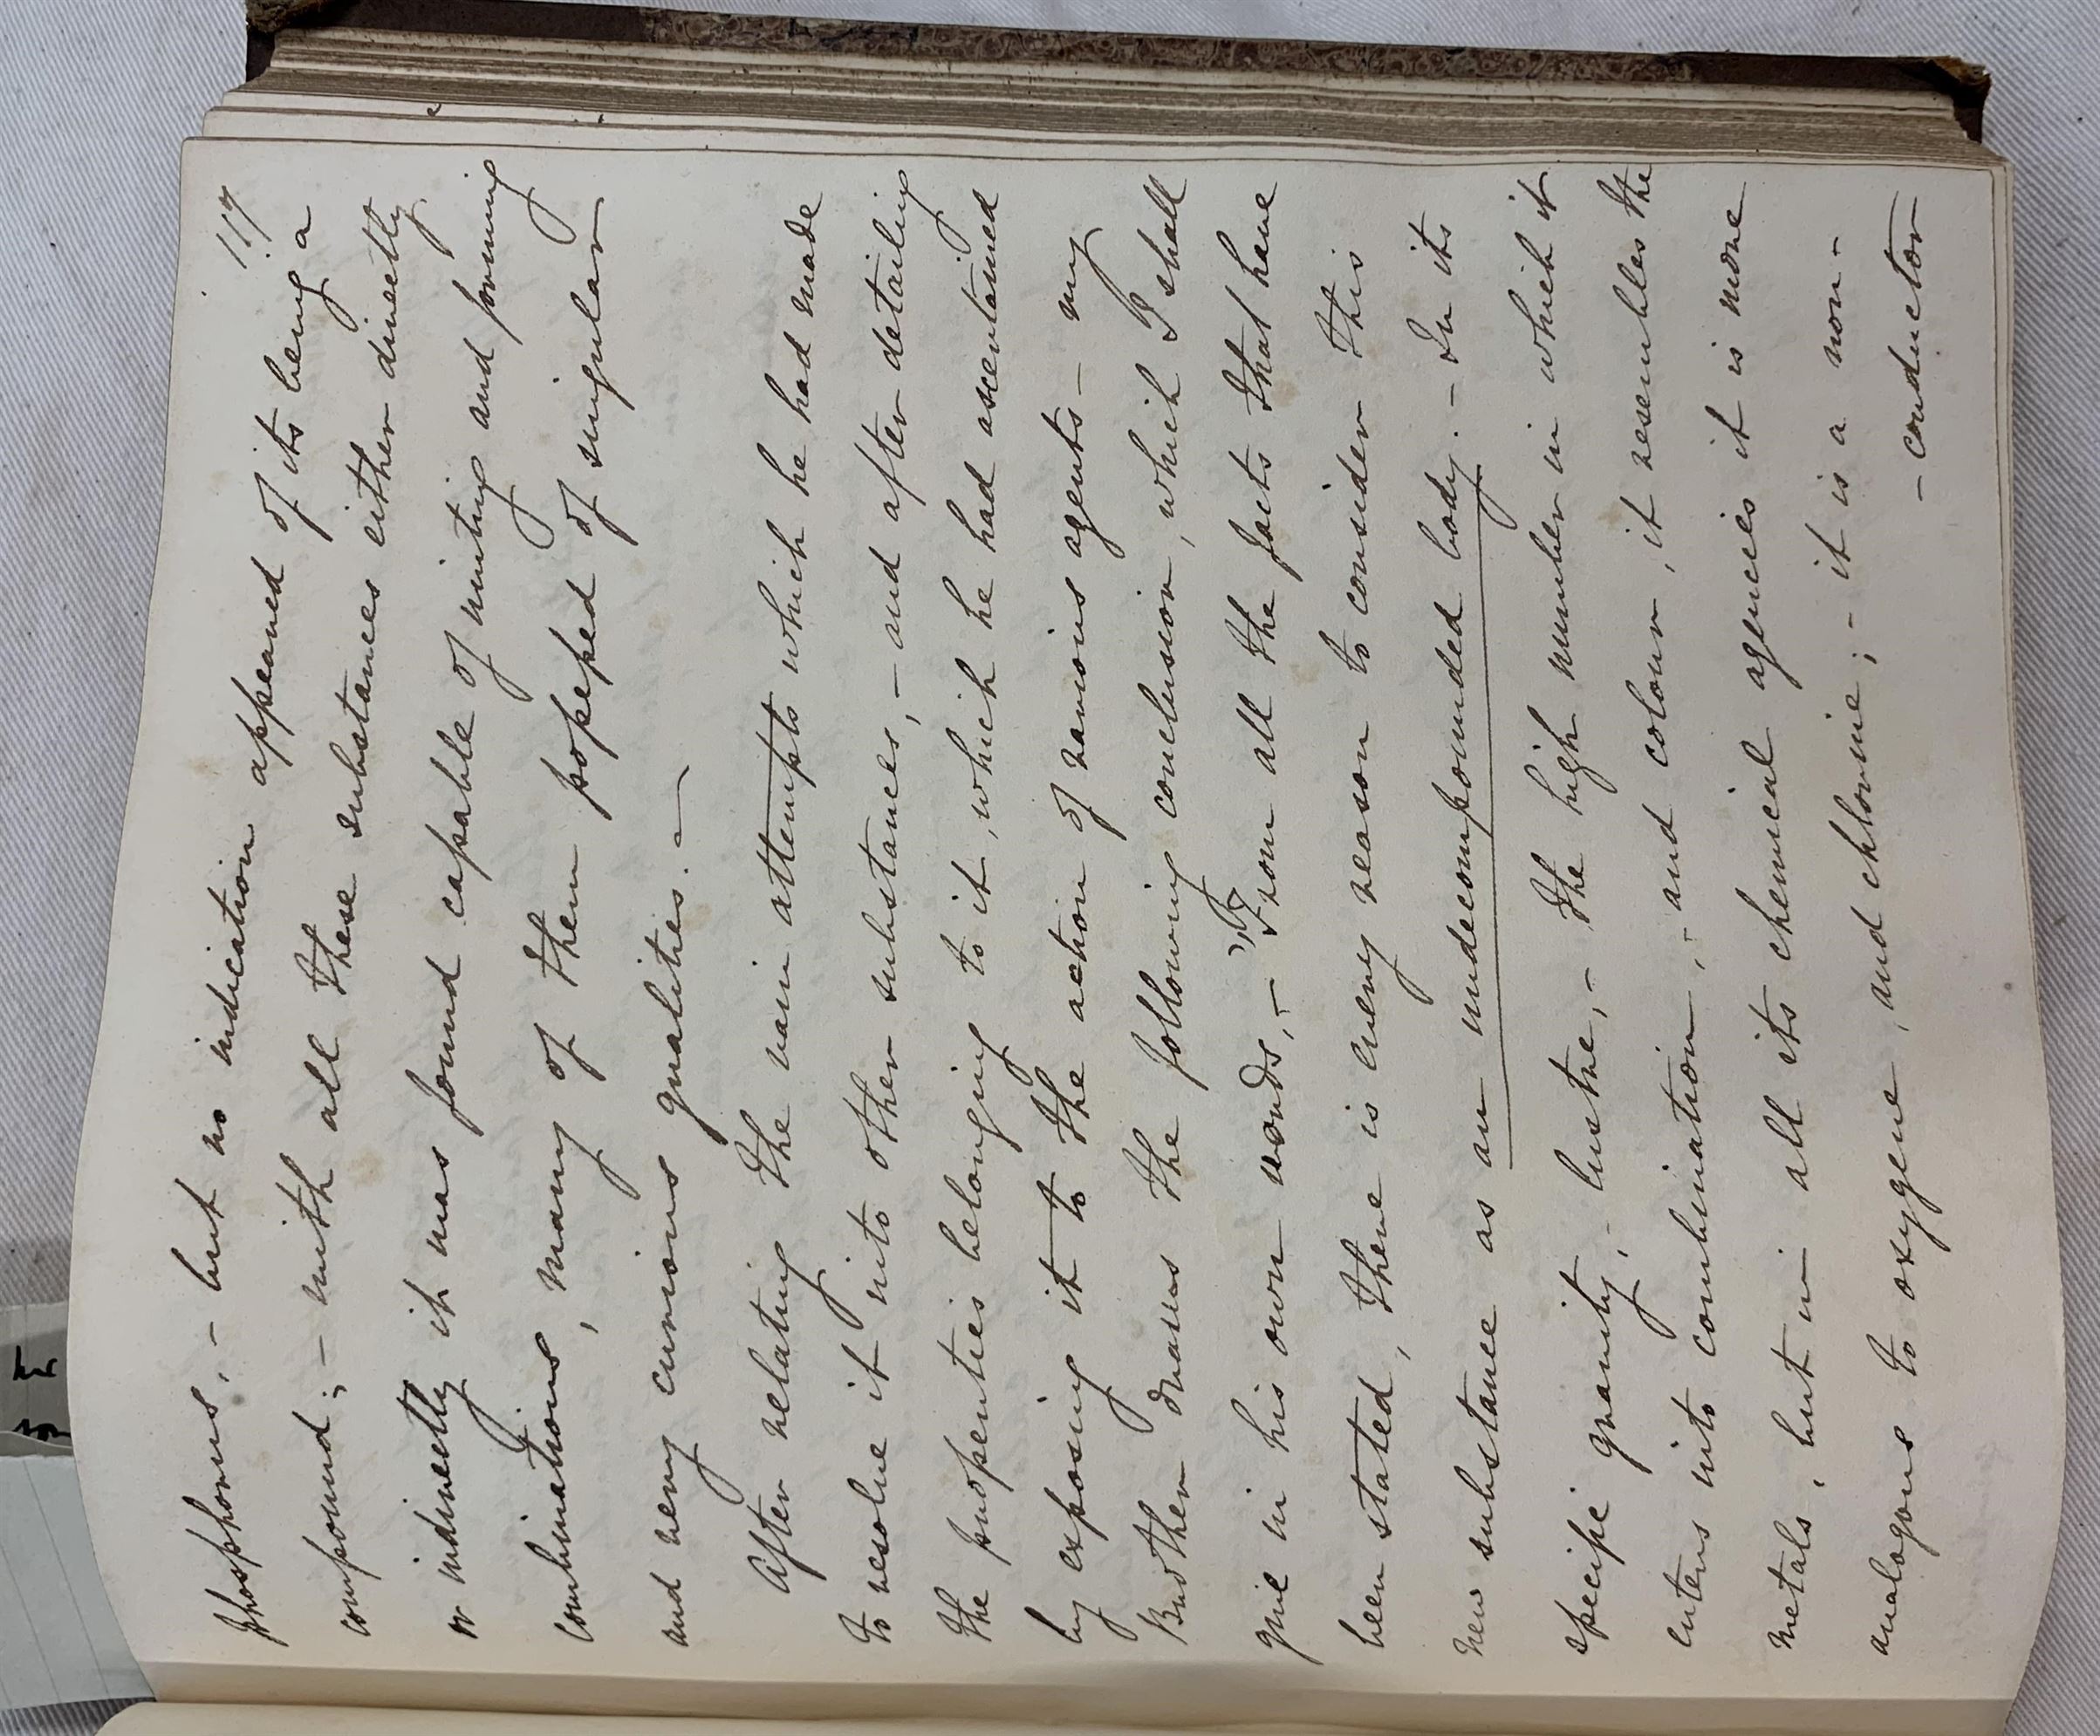 117
phosphorus, - but no indication appeared of its being a
compound; - with all these substances either directly
or indirectly it was found capable of uniting and forming
combinations, many of them poſseſsed of singular
and very curious qualities. -
After relating the vain attempts which he had made
to resolve it into other substances, - and after detailing
the properties belonging to it, which he had ascertained
by exposing it to the action of various agents - my
Brother draws the following conclusion, which I shall
give in his own words, - "From all the facts that have
been stated, there is every reason to consider this
new substance as an undecompounded body. - In its
specific gravity, - lustre, - the high number in which it
enters into combination, - and colour, it resembles the
metals, but in all its chemical agencies it is more
analogous to oxygene, and chlorine; - it is a non-
- conductor